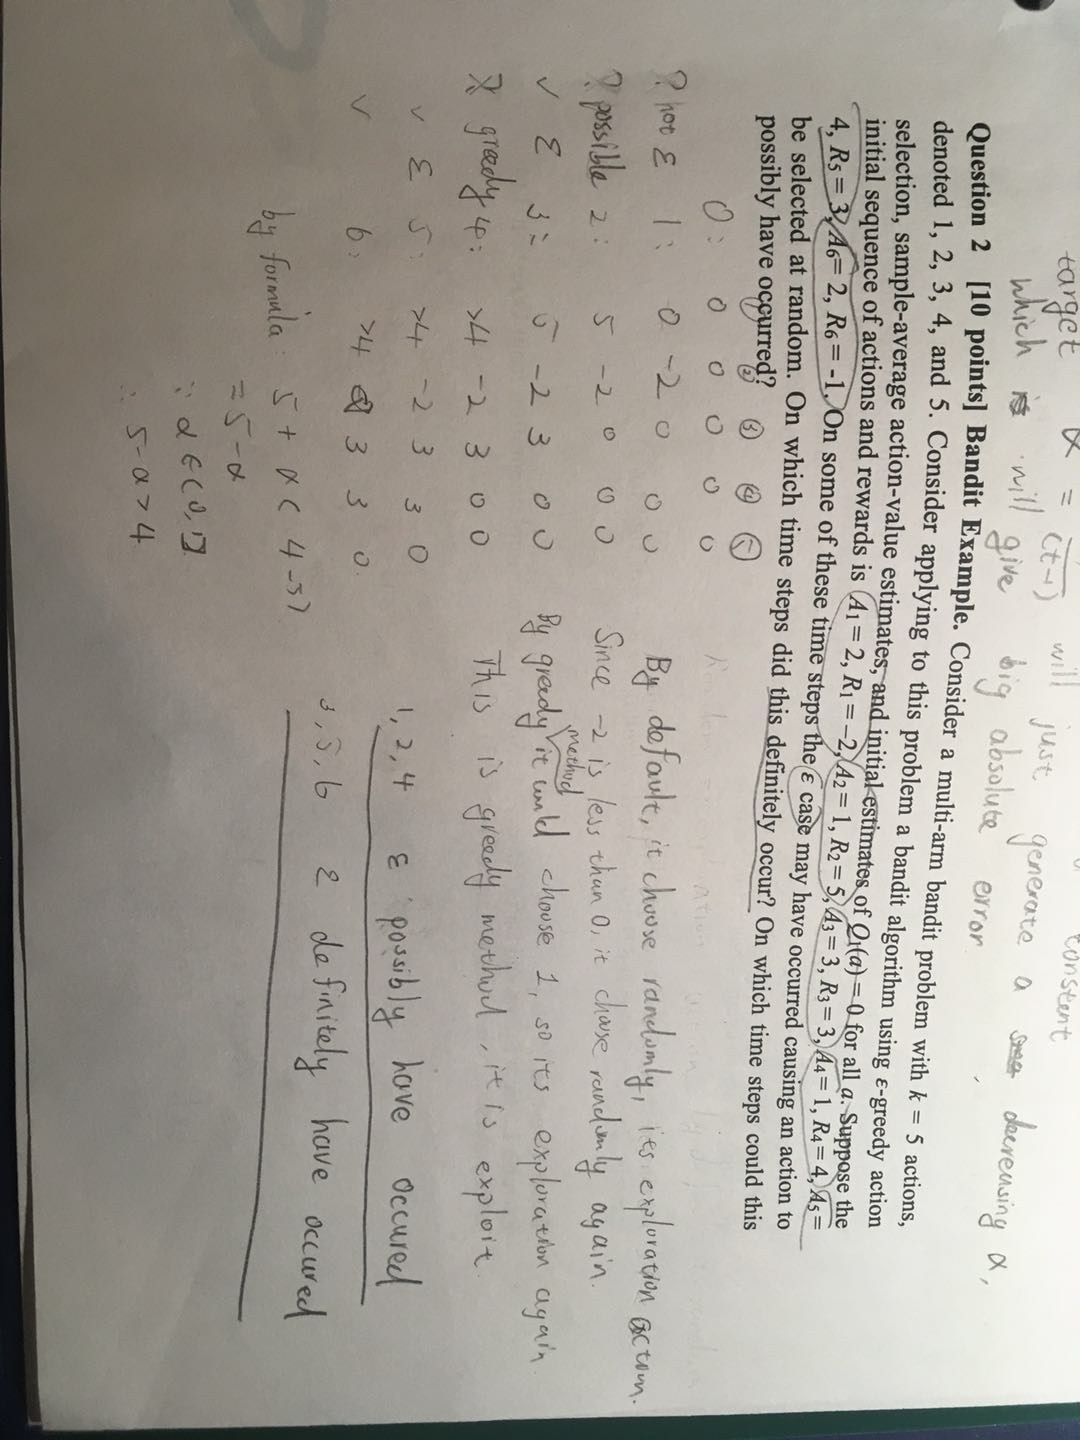 target α = (t-1) will just generate a decreasing α,
which is will give big absolute error.
constent
Question 2 [10 points] Bandit Example. Consider a multi-arm bandit problem with k = 5 actions,
denoted 1, 2, 3, 4, and 5. Consider applying to this problem a bandit algorithm using ε-greedy action
selection, sample-average action-value estimates, and initial estimates of Q1(a) = 0 for all a. Suppose the
initial sequence of actions and rewards is A1 = 2, R1 = -2, A2 = 1, R2 = 5, A3 = 3, R3 = 3, A4 = 1, R4 = 4, A5 =
4, R5 = 3, A6 = 2, R6 = -1. On some of these time steps the ε case may have occurred causing an action to
be selected at random. On which time steps did this definitely occur? On which time steps could this
possibly have occurred?
② ③ ④ ⑤
0: 0 0 0 0 0
? not ε 1: 0 -2 0 0 0 By default, it choose randomly, its exploration action.
? possible 2: 5 -2 0 0 0 Since -2 is less than 0, it chose randomly again.
✓ ε 3: 5 -2 3 0 0 By greedy method it could choose 1, so its exploration again.
greedy 4: >4 -2 3 0 0 This is greedy method, it is exploit.
✓ ε 5: >4 -2 3 3 0
✓ 6: >4 3 3 0.
1, 2, 4 ε possibly have occured
by formula: 5 + α(4-5)
= 5-α
∵ α ∈ (0,1]
∴ 5-α > 4
3, 5, 6 ε definitely have occured